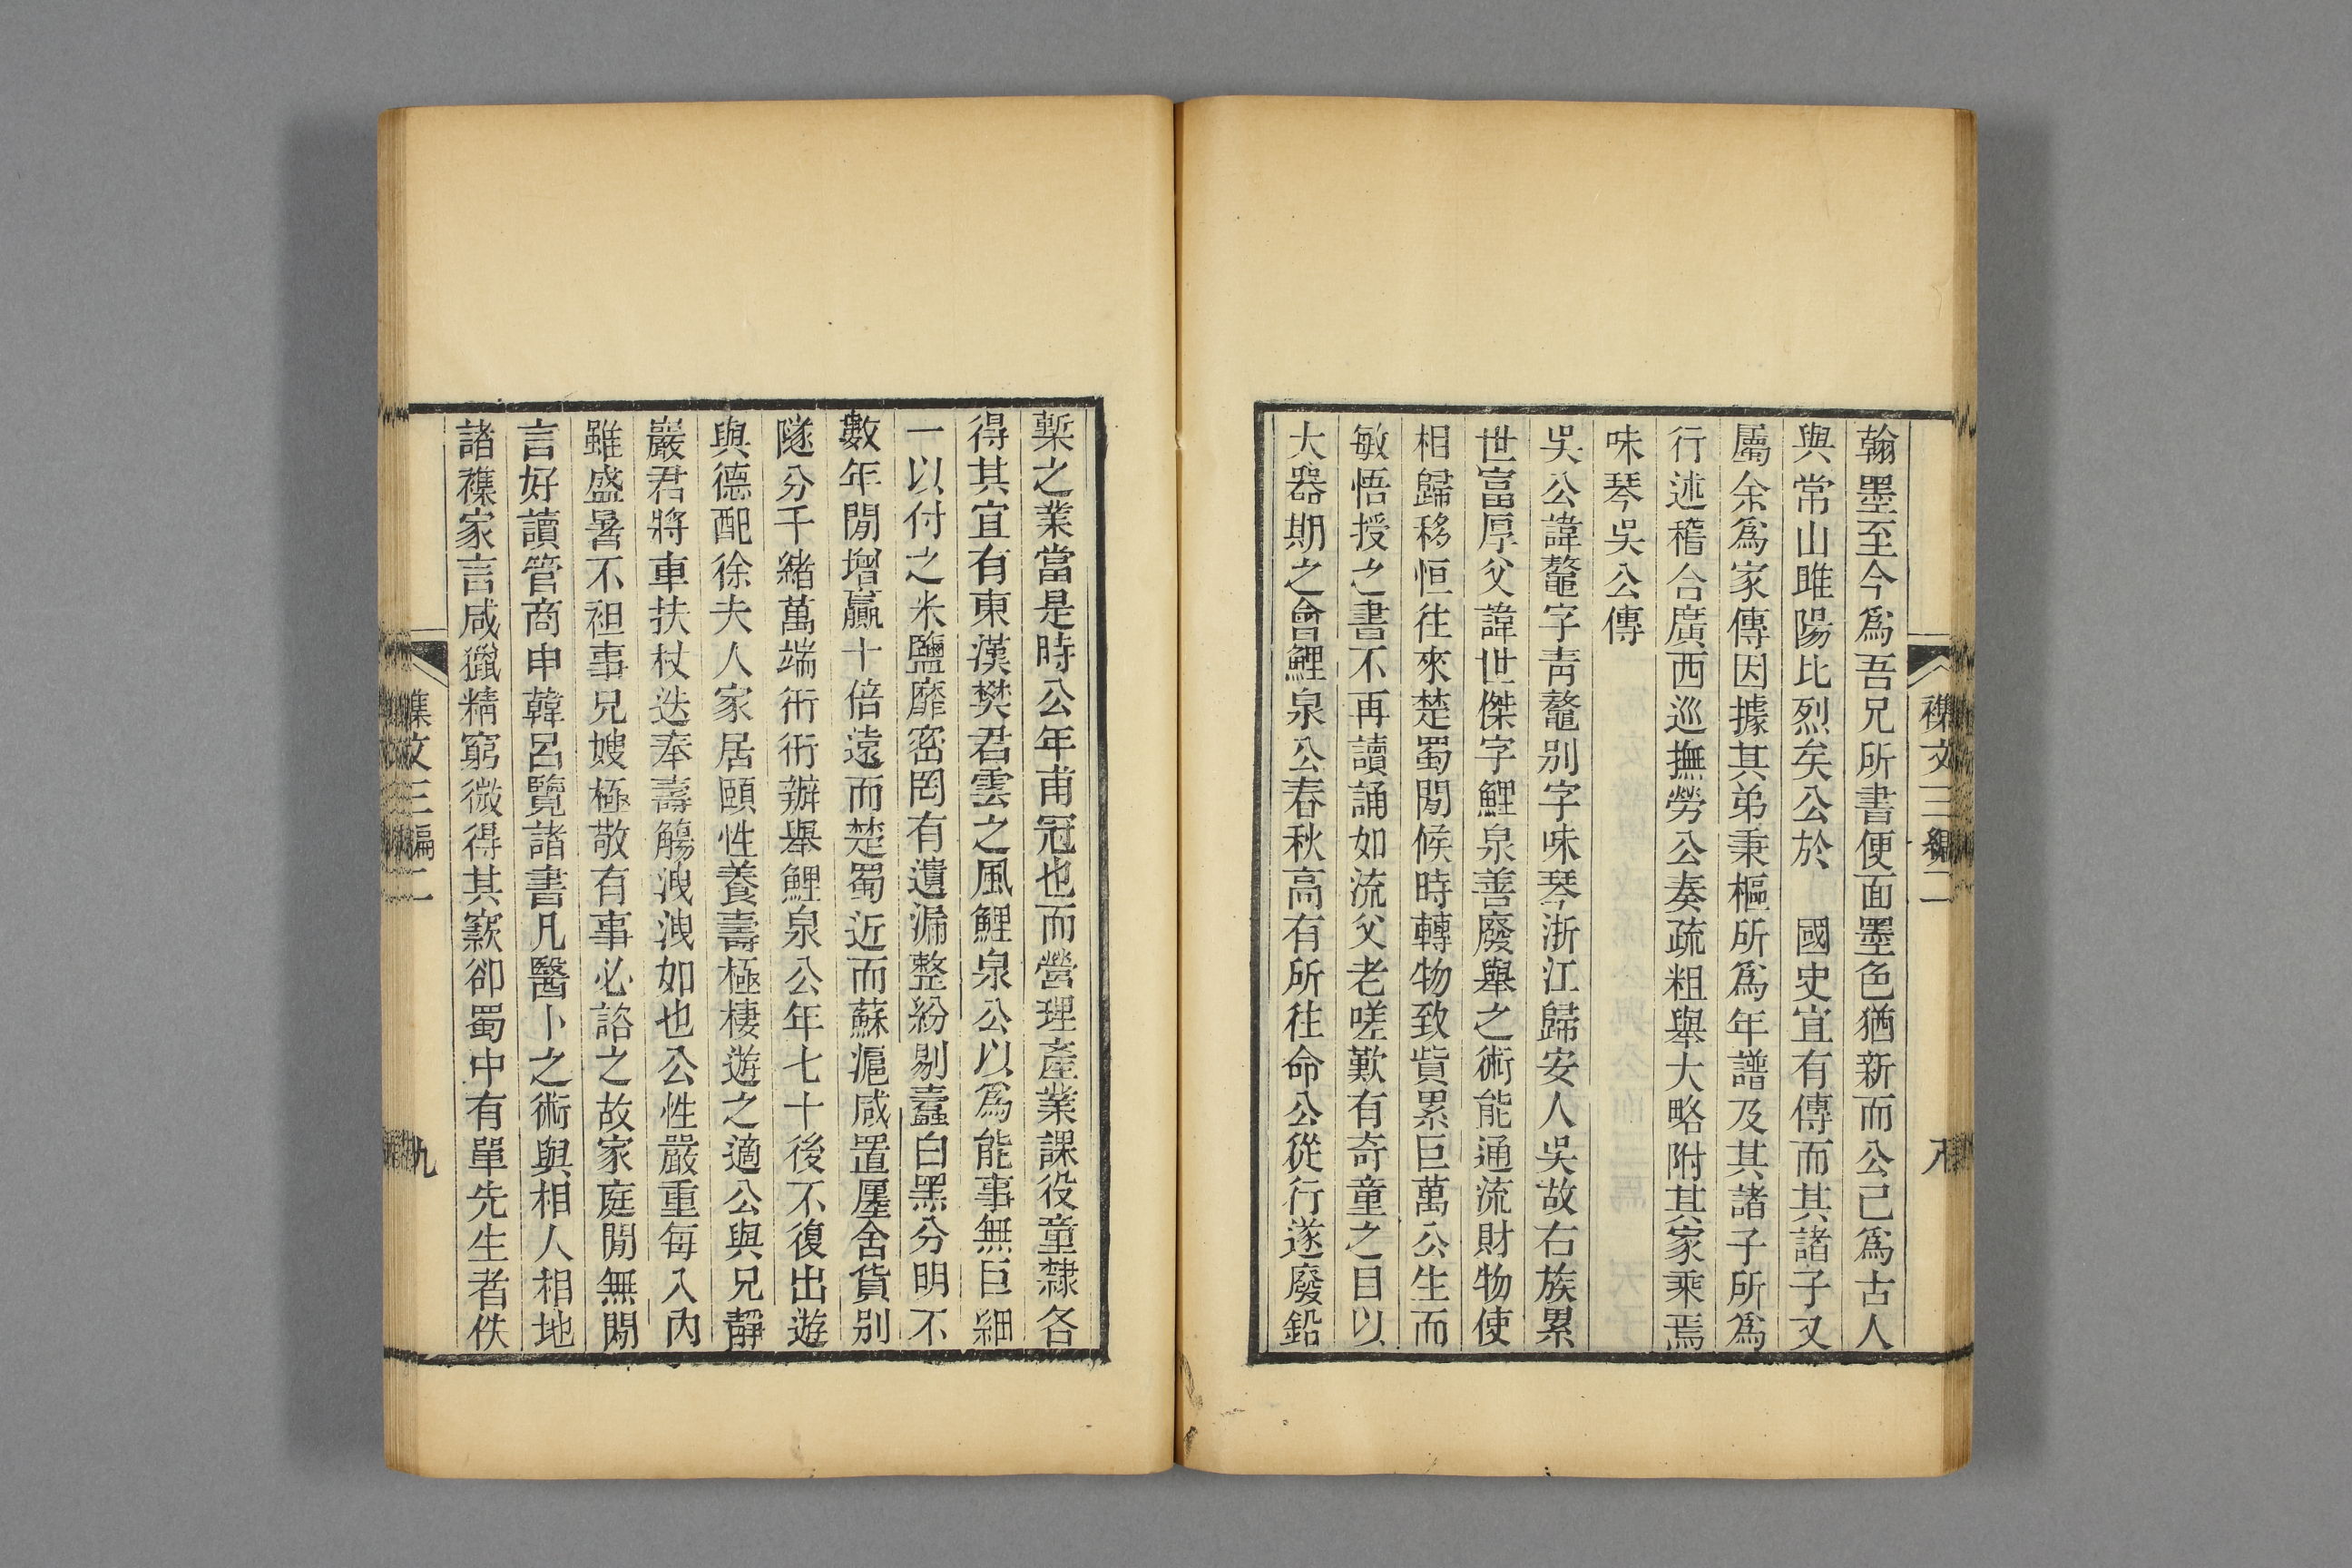 襍文三編二
八
翰墨至今爲吾兄所書便面墨色猶新而公已爲古人
與常山睢陽比烈矣公於　國史宜有傳而其諸子又
屬余爲家傳因據其弟秉樞所爲年譜及其諸子所爲
行述稽合廣西巡撫勞公奏疏粗舉大略附其家乘焉
味琴吳公傳
吳公諱鼇字靑鼇别字味琴浙江歸安人吳故右族累
世富厚父諱世傑字鯉泉善廢舉之術能通流財物使
相歸移恒往來楚蜀閒候時轉物致貲累巨萬公生而
敏悟授之書不再讀誦如流父老嗟歎有奇童之目以
大器期之會鯉泉公春秋高有所往命公從行遂廢鉛
槧之業當是時公年甫冠也而營理產業課役童隸各
得其宜有東漢樊君雲之風鯉泉公以爲能事無巨細
一以付之米鹽靡密罔有遺漏整紛剔蠹白黑分明不
數年閒增贏十倍遠而楚蜀近而蘇滬咸置廛舍貨别
隧分千緒萬端術術辦舉鯉泉公年七十後不復出遊
與德配徐夫人家居頤性養壽極棲遊之適公與兄靜
嚴君將車扶杖迭奉壽觴洩洩如也公性嚴重每入內
雖盛暑不袒事兄嫂極敬有事必諮之故家庭閒無閒
言好讀管商申韓呂覽諸書凡醫卜之術與相人相地
諸襍家言咸獵精窮微得其窾卻蜀中有單先生者佚
襍文三編二
九